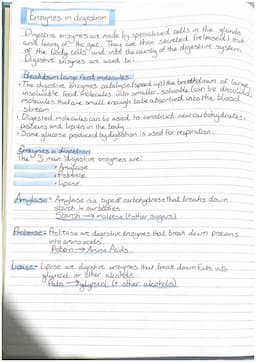 Enzymes in digestion
Digestive enzymes are made by specialised cells in the glands
and lining of the gut. They are then secreted (released) out
of the body cells and into the cavity of the digestive system.
Digestive enzymes are used to:
Breakdown large food molecules
• The digestive enzymes catalyse (speed up) the breakdown of large
insoluble food molecules into smaller, soluble (can be dissolved)
molecules that are small enough to be absorbed into the blood
stream.
• Digested molecules can be used to construct new carbohydrates,
proteins and lipids in the body.
• Some glucose produced by digestion is used for respiration.
Enzymes in digestion
The 3 main digestive enzymes are:
• Amylase
• Protease
• Lipase
Amylase - Amylase is a type of carbohydrase that breaks down
starch in our bodies.
Starch → maltose (+ other sugars)
Protease - Protease are digestive enzymes that break down proteins
into amino acids.
Protein → Amino Acids
Lipase - Lipase are digestive enzymes that break down fats into
glycerol or other alcohols
Fats → glycerol (+ other alcohols)